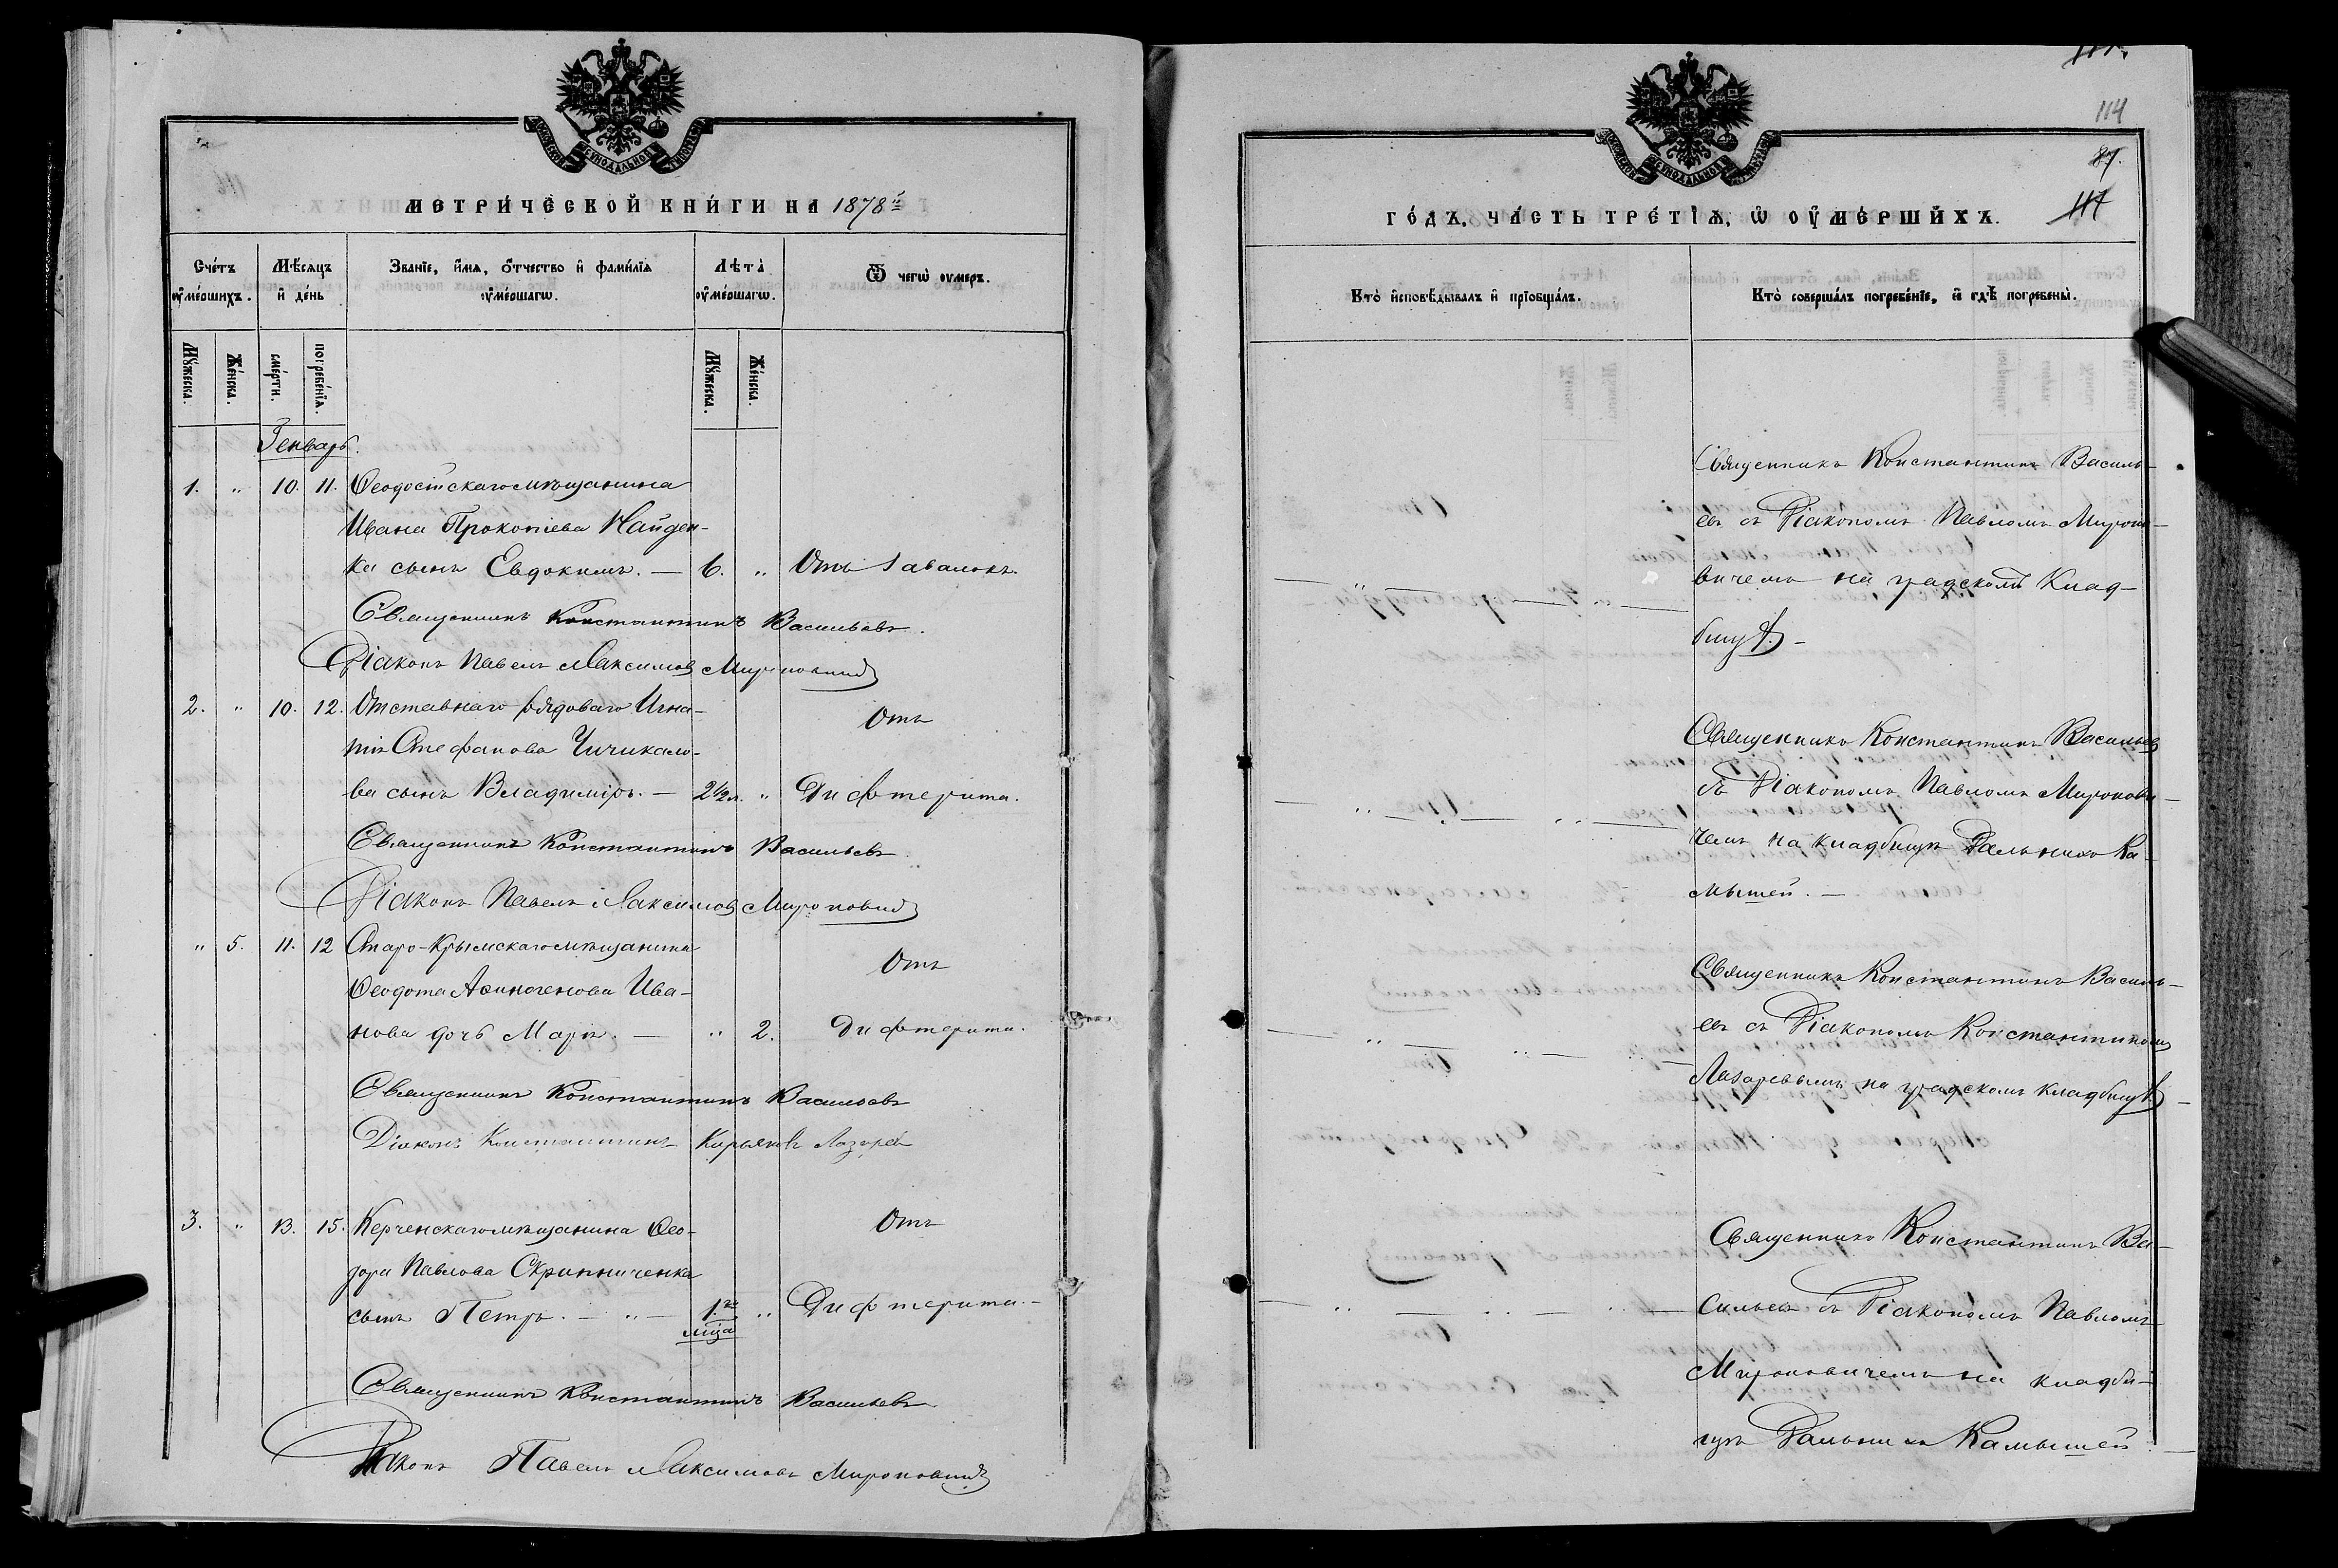 МЕТРИ́ЧЕСКОЙ КНИ́ГИ НА 1878й
Сче́тъ ᲂу҆ме́ршихъ.
Мѣ́сяцъ и҆ де́нь
Зва́нїе, и҆́мѧ, ѻ҆́тчество и҆ фами́лїѧ ᲂу҆ме́ршагѡ.
Лѣта̀ ᲂу҆ме́ршагѡ.
Ѿ чегѡ̀ ᲂу҆́меръ.
Мꙋ́жеска.
Же́нска.
сме́рти.
погребе́нїѧ.
Мꙋ́жеска.
Же́нска.
Генварь.
1. " 10. 11. Ѳеодосійскаго мѣщанина
Ивана Прокопіева Найден-
ка сынъ Евдокимъ. — 6. " Отъ завалокъ.
Священникъ Константинъ Васильевъ.
Діаконъ Павелъ Максимовъ Мироновичъ
2. " 10. 12. Отставнаго рядоваго Игна-
тія Стефанова Чичикало- Отъ
ва сынъ Владиміръ. — 2½ л. " Дифтерита.
Священникъ Константинъ Васильевъ
Діаконъ Павелъ Максимовъ Мироновичъ
" 5. 11. 12 Старо-Крымскаго мѣщанина
Ѳеодота Аѳиногенова Ива- Отъ
нова дочь Марія. — " 2. Дифтерита.
Священникъ Константинъ Васильевъ
Діаконъ Константинъ Кирьяковъ Лазаревъ
3. " 13. 15. Керченскаго мѣщанина Ѳео- Отъ
дора Павлова Скрипниченка
сынъ Петръ. — " — 1.го мѣца " Дифтерита. —
Священникъ Константинъ Васильевъ
Діаконъ Павелъ Максимовъ Мироновичъ
114
87.
117
ГО́ДЪ, ЧА́СТЬ ТРЕ́ТЇѦ, Ѡ҆ ᲂУ҆МЕ́РШИХЪ.
Кто̀ и҆сповѣ́дывалъ и҆ прїобща́лъ.
Кто̀ соверша́лъ погребе́нїе, и҆ гдѣ̀ погребены̀.
Священникъ Константинъ Василь-
евъ съ Діакономъ Павломъ Мироно-
вичемъ на градскомъ Клад-
бищѣ. —
Священникъ Константинъ Васильевъ
съ Діакономъ Павломъ Миронови-
чемъ на кладбищѣ Дальнихъ Ка-
мышей. —
Священникъ Константинъ Василь-
евъ съ Діакономъ Константиномъ
Лазаревымъ на градскомъ кладбищѣ. —
Священникъ Константинъ Ва-
сильевъ съ Діакономъ Павломъ
Мироновичемъ на кладби-
щѣ Дальнихъ Камышей. —